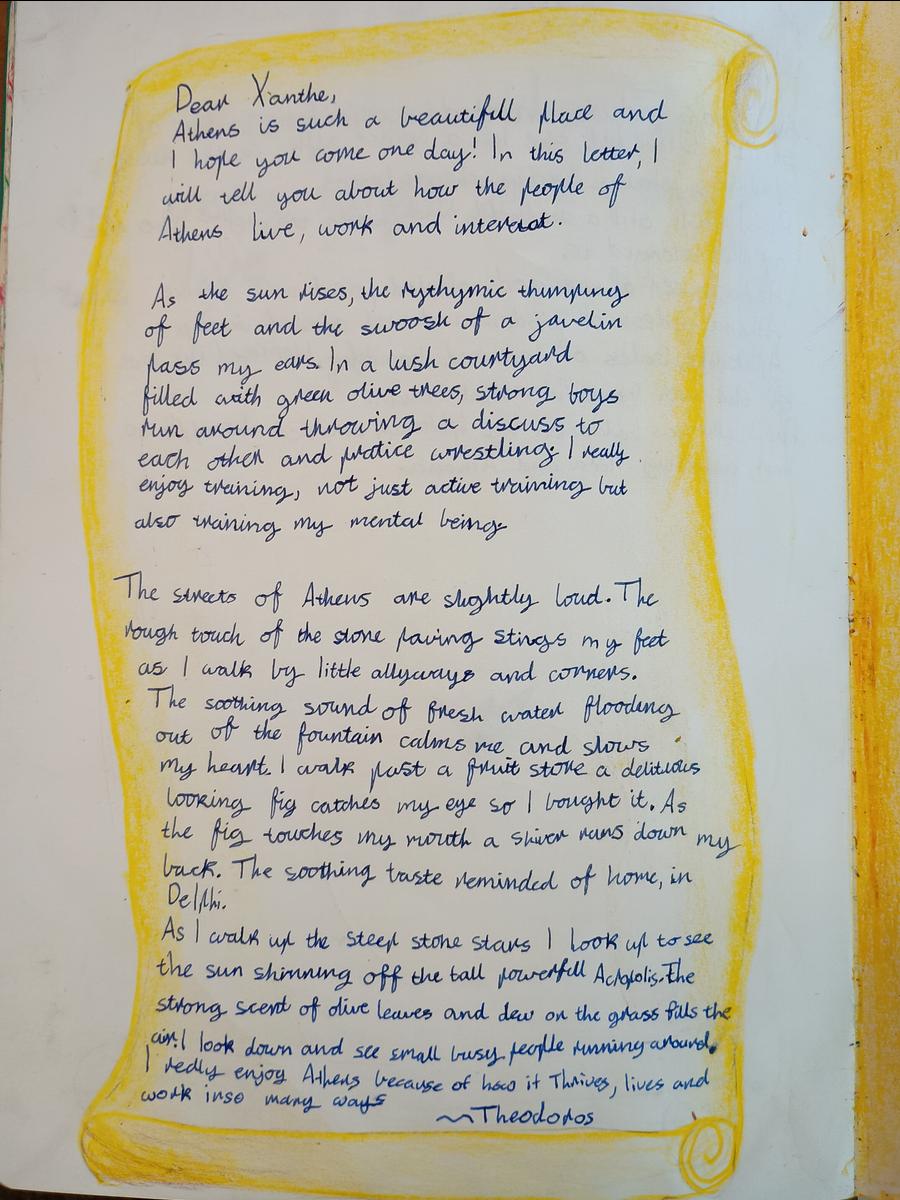 Dear Xanthe,
Athens is such a beautifull place and
I hope you come one day! In this letter, I
will tell you about how the people of
Athens live, work and interact.
As the sun rises, the rythymic thumping
of feet and the swoosh of a javelin
pass my ears. In a lush courtyard
filled with green olive trees, strong boys
run around throwing a discuss to
each other and pratice wrestling. I really
enjoy training, not just active training but
also training my mental being.
The streets of Athens are slightly loud. The
rough touch of the stone paving stings my feet
as I walk by little allyways and corners.
The soothing sound of fresh water flooding
out of the fountain calms me and slows
my heart. I walk past a fruit store a delitious
looking fig catches my eye so I bought it. As
the fig touches my mouth a shiver runs down my
back. The soothing taste reminded of home, in
Delphi.
As I walk up the steep stone stars I look up to see
the sun shinning off the tall powerfull Acropolis. The
strong scent of olive leaves and dew on the grass fills the
air. I look down and see small busy people running around.
I really enjoy Athens because of how it Thrives, lives and
work in so many ways
~Theodoros